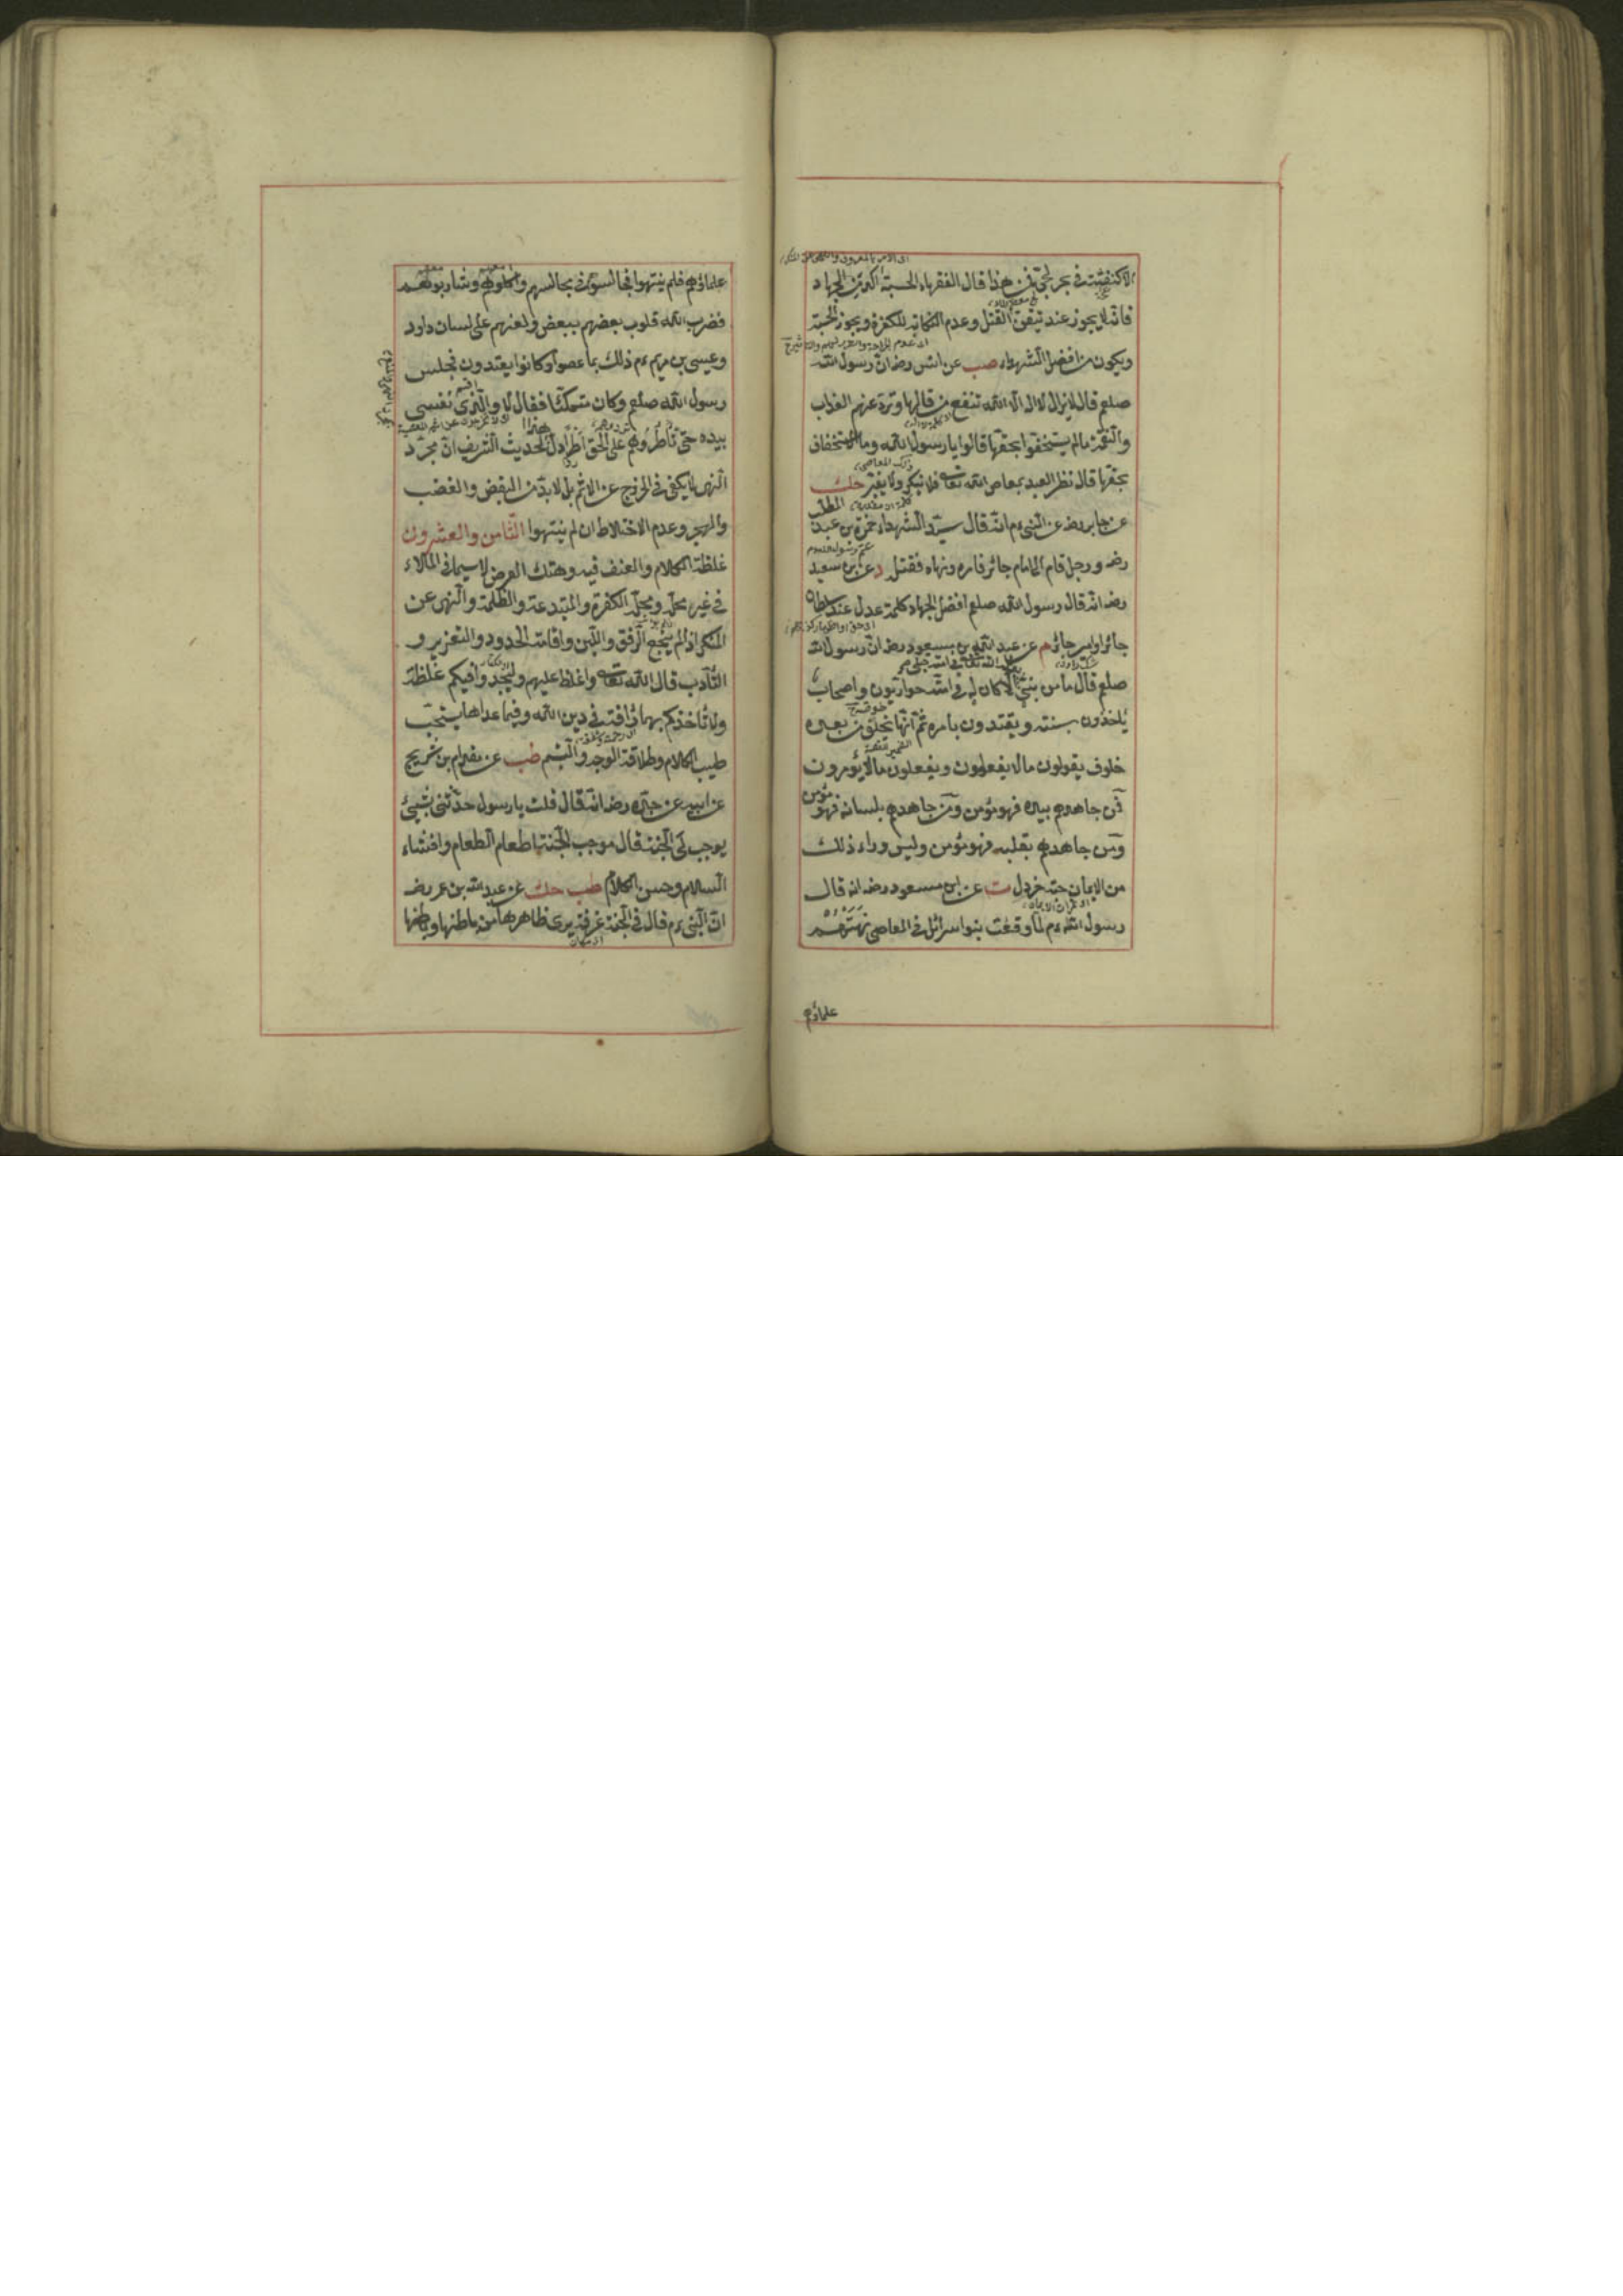 الا كنفثة في بحر لجّيّ فمن هذا قال الفقهاء الحسبة اكد من الجهاد
فانه لا يجوز عند تيقن القتل وعدم النكاية للكفرة ويجوز الحسبة
ويكون من افضل الشهداء صب عن انس رضه ان رسول الله
صلعم قال لا يزال لا اله الا الله تنفع من قالها وترد عنهم العذاب
والنقمة ما لم يستخفوا بحقها قالوا يا رسول الله وما الاستخفاف
بحقها قال نظر العبد بمعاصي الله تعالى فلا ينكر ولا يغير حك
عن جابر رضه عن النبي ءم انه قال سيد الشهداء حمزة بن عبد المطلب
رضه ورجل قام الى امام جائر فامره ونهاه فقتل د عن ابي سعيد
رضه انه قال رسول الله صلعم افضل الجهاد كلمة عدل عند سلطان
جائر او امير جائر م عن عبد الله بن مسعود رضه ان رسول الله
صلعم قال ما من نبي الا كان له في امته حواريون واصحاب
ياخذون بسنته ويقتدون بامره ثم انها تخلف من بعده
خلوف يقولون ما لا يفعلون ويفعلون ما لا يؤمرون
فمن جاهدهم بيده فهو مؤمن ومن جاهدهم بلسانه فهو مؤمن
ومن جاهدهم بقلبه فهو مؤمن وليس وراء ذلك
من الايمان حبة خردل ت عن ابن مسعود رضه انه قال
رسول الله ءم لما وقعت بنو اسرائل في المعاصي نهتهم
علماؤهم
علماؤهم فلم ينتهوا فجالسوهم في مجالسهم واكلوهم وشاربوهم
فضرب الله قلوب بعضهم ببعض ولعنهم على لسان داود
وعيسى بن مريم ءم ذلك بما عصوا وكانوا يعتدون فجلس
رسول الله صلعم وكان متكئا فقال لا والذي نفسي
بيده حتى تاطروهم على الحق اطرا دل هذا الحديث الشريف ان مجرد
النهي لا يكفي في الخروج عن الاثم بل لا بد من البغض والغضب
والهجر وعدم الاختلاط ان لم ينتهوا الثامن والعشرون
غلظة الكلام والعنف فيه وهتك العرض لا سيما في الملاء
في غير محله ومحله الكفرة والمبتدعة والظلمة والنهي عن
المنكر اذا لم ينجع الرفق واللين واقامة الحدود والتعزير و
التأدب قال الله تعالى واغلظ عليهم وليجدوا فيكم غلظة
ولا تأخذكم بهما رأفة في دين الله وفيما عداها يستحب
طيب الكلام وطلاقة الوجه والتبسم طب عن مقدام بن شريح
عن ابيه عن جده رضه انه قال قلت يا رسول حدثني بشيئ
يوجب لي الجنة قال موجب الجنة اطعام الطعام وافشاء
السلام وحسن الكلام طب حك عن عبد الله بن عمر رضه
ان النبي ءم قال في الجنة غرفة يرى ظاهرها من باطنها وباطنها